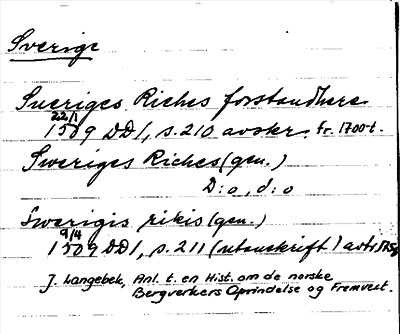 Sverige
Sueriges Riches forstandhere
22/1
1509 DD1, s. 210 avskr. fr. 1700-t.
Sweriges Riches (gen.)
D:o, d:o
Swerigis rikis (gen.)
9/4
1509 DD1, s. 211 (utanskrift) avtr. 1758
J. Langebek, Anl. t. en Hist. om de norske
Bergverkers Oprindelse og Fremvext.